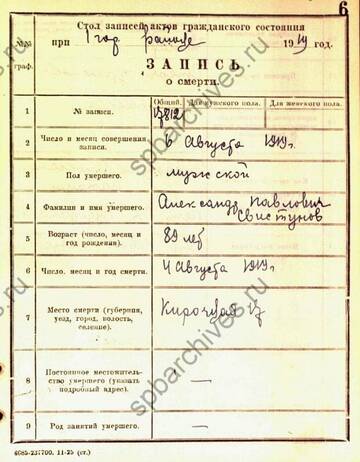 6
Стол записей актов гражданского состояния
№№ граф.
при 1 гор. районе 1919 год.
ЗАПИСЬ
о смерти.
1 № записи. Общий. Для мужского пола. Для женского пола.
2 Число и месяц совершения записи. 6 Августа 1919 г.
3 Пол умершего. мужской
4 Фамилия и имя умершего. Александр Павлович Свистунов
5 Возраст (число, месяц и год рождения). 89 лет
6 Число, месяц и год смерти. 4 Августа 1919 г.
7 Место смерти (губерния, уезд, город, волость, селение). Кирочная
8 Постоянное местожительство умершего (указать подробный адрес). —
9 Род занятий умершего. —
6085-237700. 11-25 (ст.)
spbarchives.ru
spbarchives.ru
spbarchives.ru